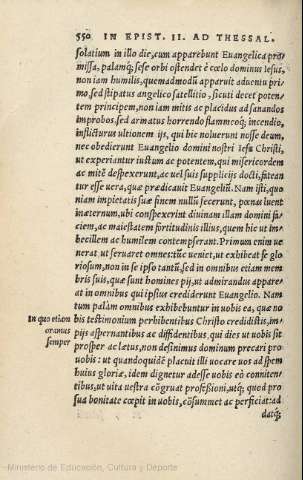 550 IN EPIST. II. AD THESSAL.
solatium in illo die, cum apparebunt Euangelica pro
missa, palamq́; sese orbi ostendet è cœlo dominus Iesus,
non iam humilis, quemadmodũ apparuit aduentu pri
mo, sed stipatus angelico satellitio, sicuti decet poten
tem principem, non iam mitis ac placidus ad sanandos
improbos, sed armatus horrendo flammeoq́; incendio,
inflicturus ultionem ijs, qui hic noluerunt nosse deum,
nec obedierunt Euangelio domini nostri Iesu Christi,
ut experiantur iustum ac potentem, qui misericordem
ac mitẽ despexerunt, ac uel suis supplicijs docti, fatean
tur esse uera, quæ prædicauit Euangeliũ. Nam isti, quo
niam impietatis suæ finem nullũ fecerunt, pœnas luent
in æternum, ubi conspexerint diuinam illam domini fa
ciem, ac maiestatem fortitudinis illius, quem hic ut im
becillem ac humilem contempserant. Primum enim ue
nerat ut seruaret omnes: tũc ueniet, ut exhibeat se glo
riosum, non in se ipso tantũ, sed in omnibus etiam mem
bris suis, quæ sunt homines pij, ut admirandus appare
at in omnibus qui ipsius crediderunt Euangelio. Nam
tum palàm omnibus exhibebuntur in uobis ea, quæ no
In quo etiam bis testimonium perhibentibus Christo credidistis, im
oramus pijs aspernantibus ac diffidentibus. qui dies ut uobis sit
semper prosper ac lætus, non desinimus dominum precari pro
uobis: ut quandoquidẽ placuit illi uocare uos ad spem
huius gloriæ, idem dignetur adesse uobis eò conniten
tibus, ut uita uestra cõgruat professioni, utq́; quod pro
sua bonitate cœpit in uobis, cõsummet ac perficiat: ad
datq́;
Ministerio de Educación, Cultura y Deporte